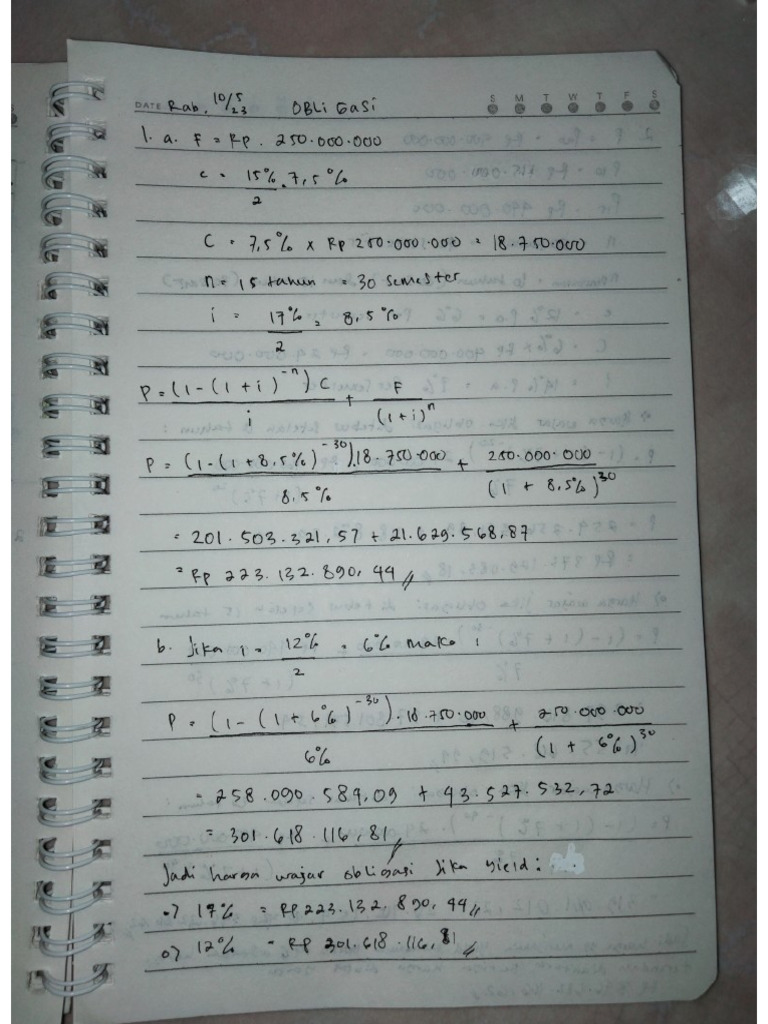 DATE Rab, 10/5 23 OBLIGASI S M T W T F S
1. a. F = Rp. 250.000.000
c = 15%/2 . 7,5%
C = 7,5% x Rp 250.000.000 = 18.750.000
n = 15 tahun = 30 semester
i = 17%/2 = 8,5%
P = (1-(1+i)^-n) C / i + F / (1+i)^n
P = (1-(1+8,5%)^-30).18.750.000 / 8,5% + 250.000.000 / (1 + 8,5%)^30
= 201.503.321,57 + 21.629.568,87
= Rp 223.132.890,44 //
b. Jika i = 12%/2 = 6% maka :
P = (1-(1+6%)^-30).18.750.000 / 6% + 250.000.000 / (1 + 6%)^30
= 258.090.584,09 + 43.527.532,72
= 301.618.116,81 //
Jadi harga wajar obligasi Jika yield :
o) 17% = Rp 223.132.890,44 //
o) 12% = Rp 301.618.116,81 //